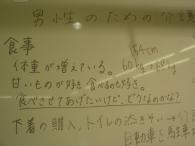 男性のための介
食事
164cm
体重が増えている。60kg
甘いものが好き 食べるのも好き。
食べさせてあげたいけど、どうなのかな?
下着の購入、トイレの
自転車